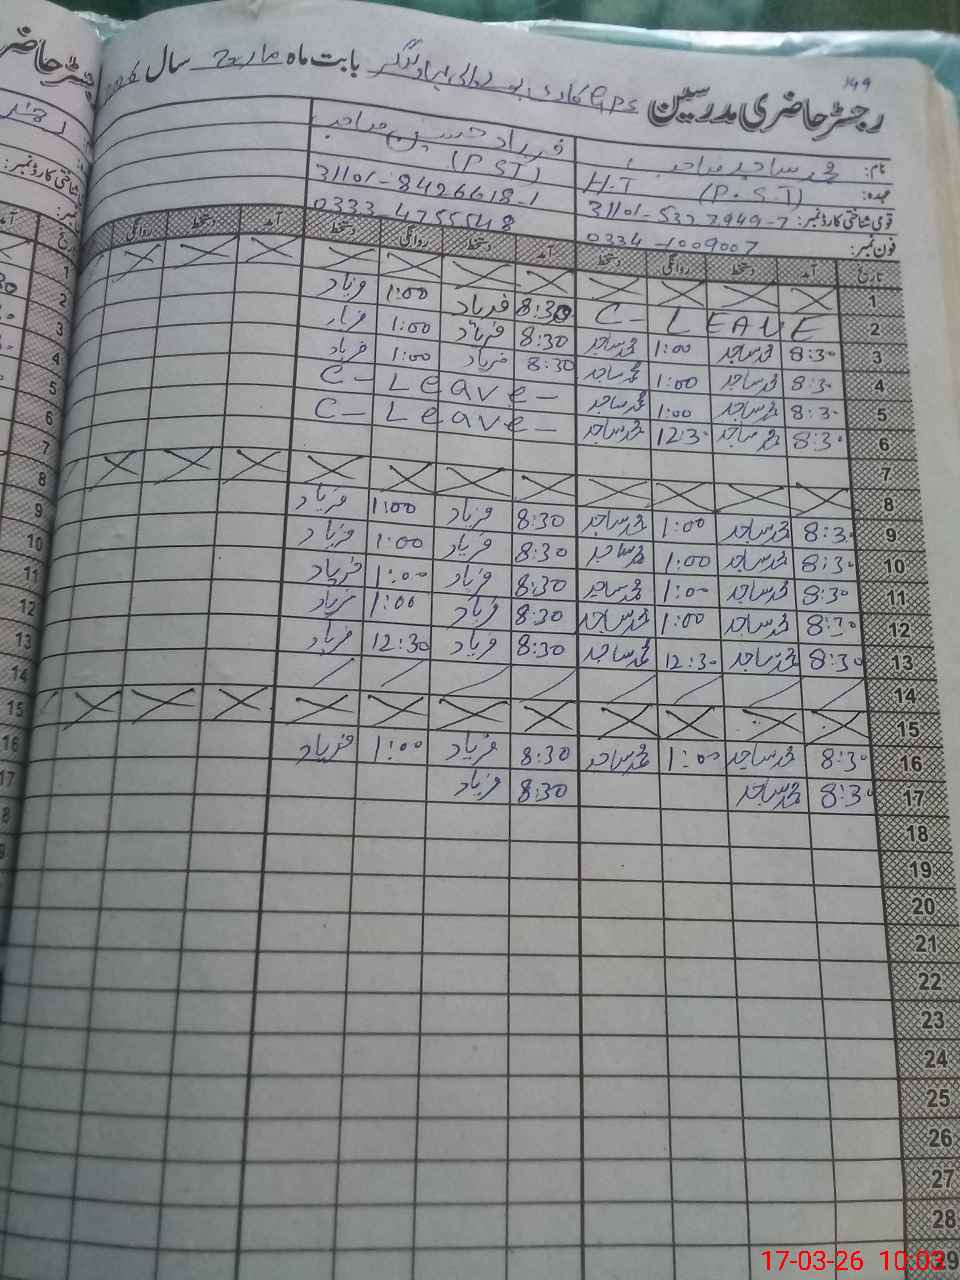 149
رجسٹر حاضری مدرسین GPS بابت ماہ مارچ سال 2026
نام: محمد ساجد صاحب فریاد حسین صاحب
عہدہ: H.T (P.S.T) (PST)
قومی شناختی کارڈ نمبر: 31101-8426618-1
فون نمبر: 0334-1009007 0333-4755548
تاریخ آمد دستخط روانگی دستخط آمد دستخط روانگی دستخط آمد دستخط روانگی
1
2 C- LEAVE 8:30 فریاد 1:00 فریاد
3 8:30 محمد ساجد 1:00 محمد ساجد 8:30 فریاد 1:00 فریاد
4 8:30 محمد ساجد 1:00 محمد ساجد 8:30 فریاد 1:00 فریاد
5 8:30 محمد ساجد 1:00 محمد ساجد C- Leave-
6 8:30 محمد ساجد 12:30 محمد ساجد C- Leave-
7
8
9 8:30 محمد ساجد 1:00 محمد ساجد 8:30 فریاد 1:00 فریاد
10 8:30 محمد ساجد 1:00 محمد ساجد 8:30 فریاد 1:00 فریاد
11 8:30 محمد ساجد 1:00 محمد ساجد 8:30 فریاد 1:00 فریاد
12 8:30 محمد ساجد 1:00 محمد ساجد 8:30 فریاد 1:00 فریاد
13 8:30 محمد ساجد 12:30 محمد ساجد 8:30 فریاد 12:30 فریاد
14
15
16 8:30 محمد ساجد 1:00 محمد ساجد 8:30 فریاد 1:00 فریاد
17 8:30 محمد ساجد 8:30 فریاد
18
19
20
21
22
23
24
25
26
27
28
29
17-03-26 10:03